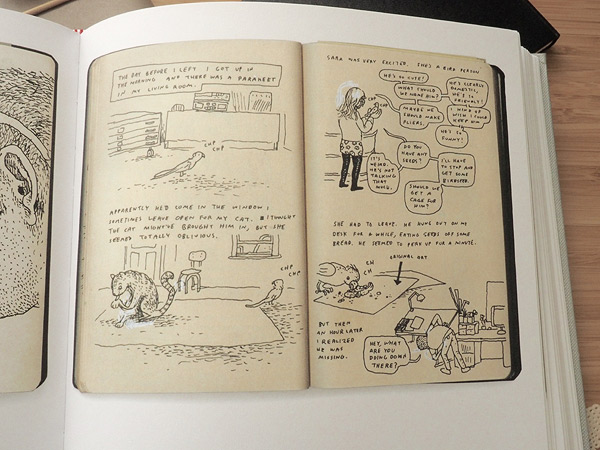 THE DAY BEFORE I LEFT I GOT UP IN
THE MORNING AND THERE WAS A PARAKEET
IN MY LIVING ROOM.
CHP
CHP
APPARENTLY HE'D COME IN THE WINDOW I
SOMETIMES LEAVE OPEN FOR MY CAT. I THOUGHT
THE CAT MIGHT'VE BROUGHT HIM IN, BUT SHE
SEEMED TOTALLY OBLIVIOUS.
CHP
CHP
SARA WAS VERY EXCITED. SHE'S A BIRD PERSON
HE'S SO CUTE!
WHAT SHOULD
WE NAME HIM?
HE'S CLEARLY
DOMESTIC,
HE'S SO
FRIENDLY!
MAYBE WE
SHOULD MAKE
FLIERS.
I WISH
I COULD
KEEP HIM!
CHP
CHP
HE'S SO
FUNNY!
DO YOU
HAVE ANY
SEEDS?
IT'S
WEIRD.
HE'S NOT
TALKING
THAT
MUCH.
I'LL HAVE
TO STOP AND
GET SOME
BIRDSEED.
SHOULD WE
GET A
CAGE FOR
HIM?
SHE HAD TO LEAVE. HE HUNG OUT ON MY
DESK FOR A WHILE, EATING SEEDS OFF SOME
BREAD. HE SEEMED TO PERK UP FOR A MINUTE.
CH
CH
ORIGINAL ART
BUT THEN
AN HOUR LATER
I REALIZED
HE WAS
MISSING.
HEY, WHAT
ARE YOU
DOING DOWN
THERE?